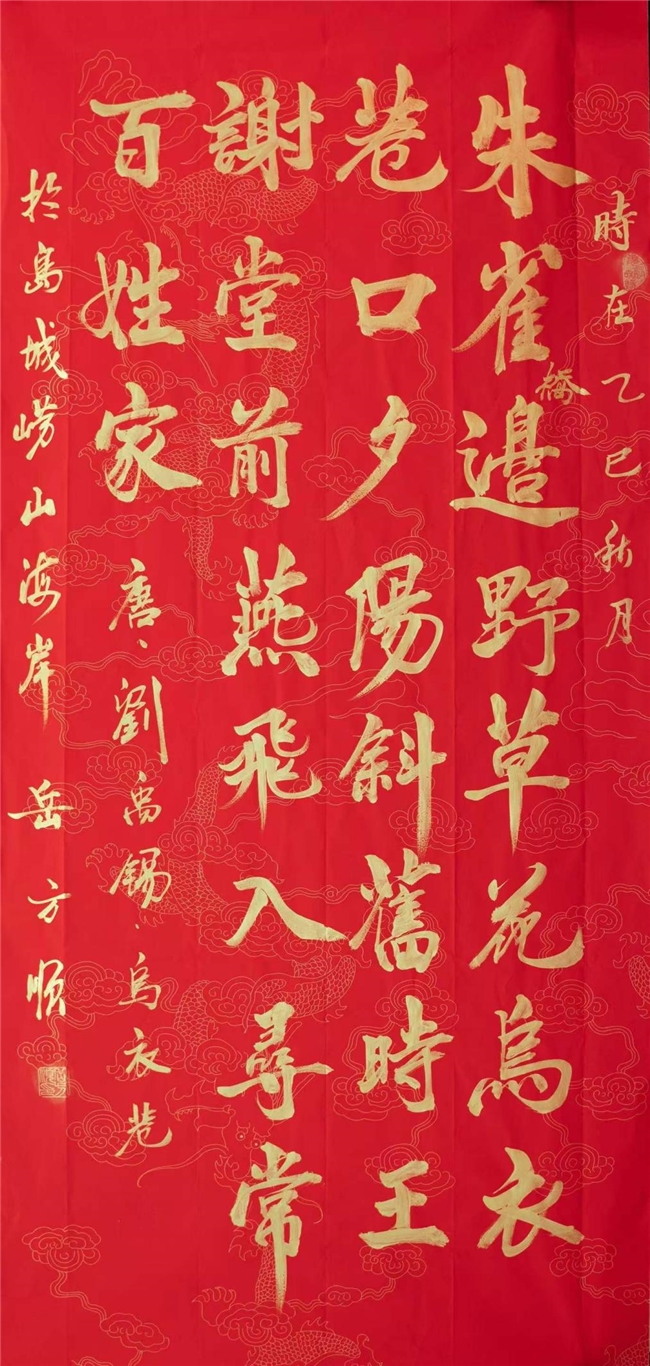 時在乙巳秋月
朱雀橋邊野草花烏衣
巷口夕陽斜舊時王
謝堂前燕飛入尋常
百姓家
唐、劉禹錫、烏衣巷
於島城嶗山海岸岳方順